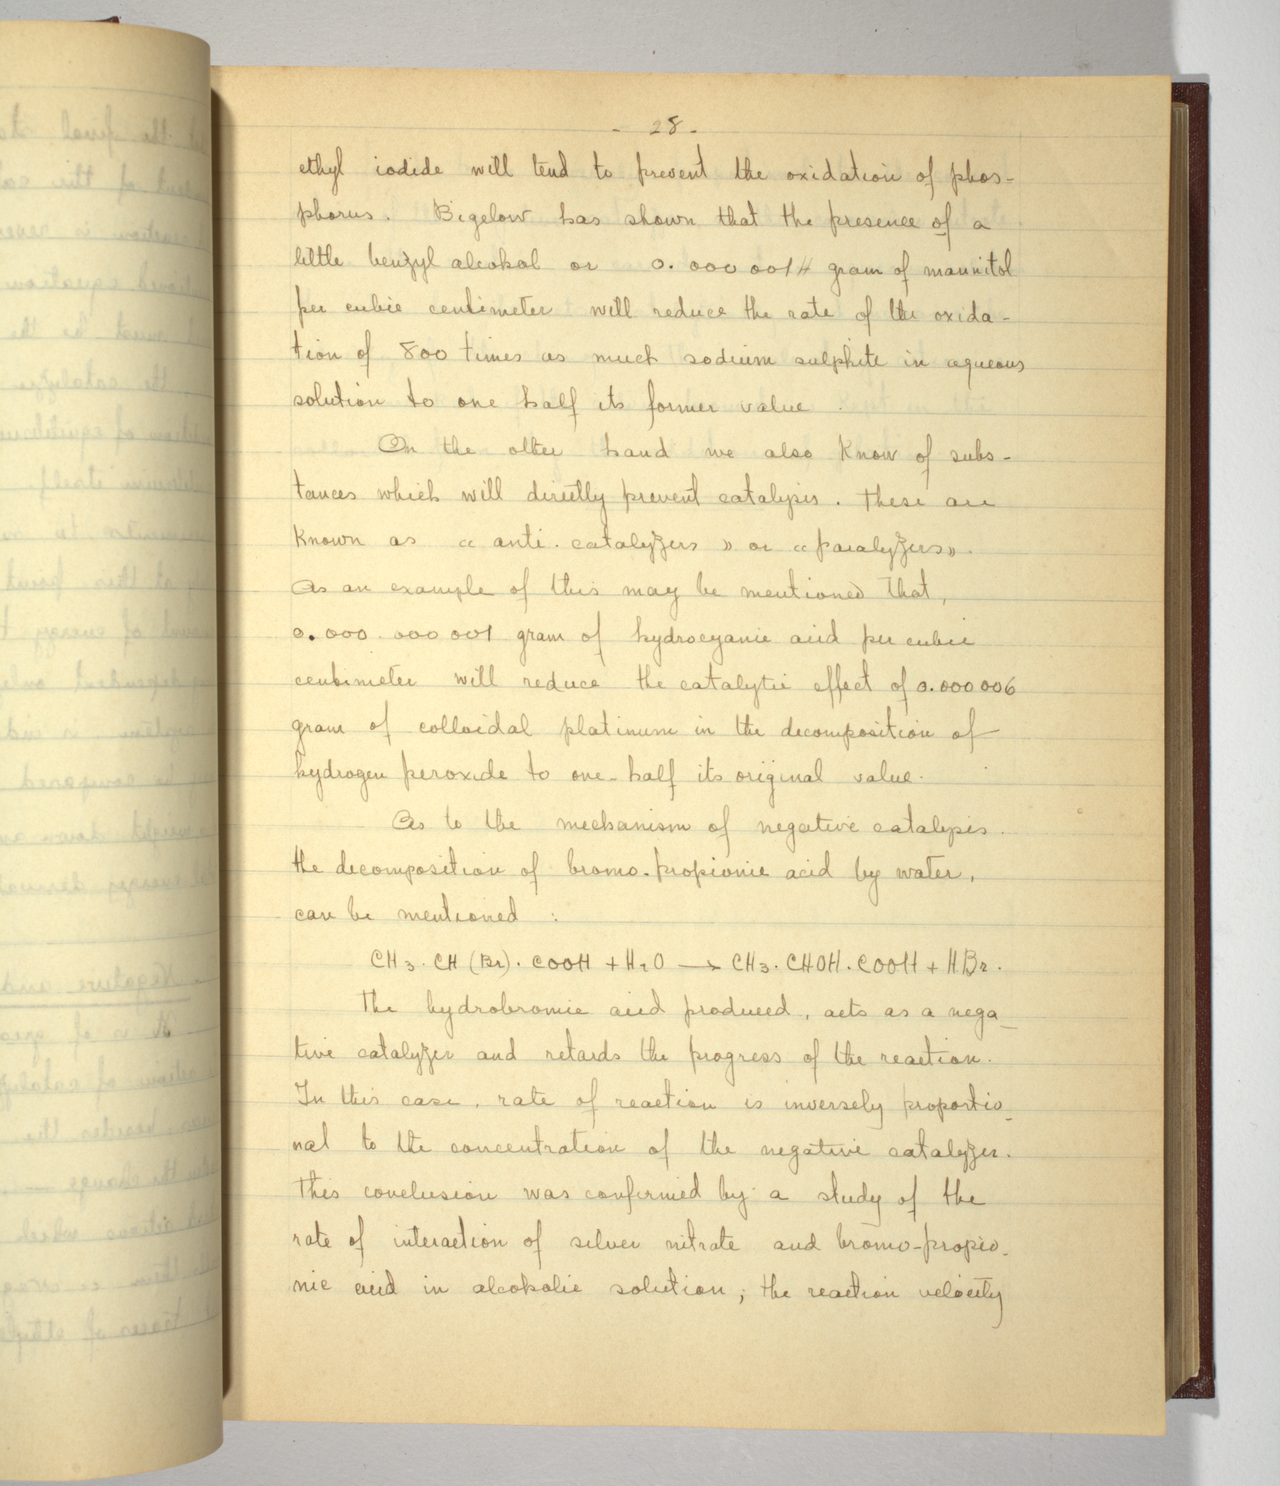 - 28 -
ethyl iodide will tend to prevent the oxidation of phos-
phorus. Bigelow has shown that the presence of a
little benzyl alcohol or 0.000 0014 gram of mannitol
per cubic centimeter will reduce the rate of the oxida-
tion of 800 times as much sodium sulphite in aqueous
solution to one half its former value.
On the other hand we also know of subs-
tances which will directly prevent catalysis. These are
known as « anti-catalyzers » or « paralyzers ».
As an example of this may be mentioned that,
0.000 000 001 gram of hydrocyanic acid per cubic
centimeter will reduce the catalytic effect of 0.000 006
gram of colloidal platinum in the decomposition of
hydrogen peroxide to one-half its original value.
As to the mechanism of negative catalysis.
the decomposition of bromo-propionic acid by water,
can be mentioned :
CH3.CH(Br).COOH + H2O → CH3.CHOH.COOH + HBr.
The hydrobromic acid produced, acts as a nega-
tive catalyzer and retards the progress of the reaction.
In this case, rate of reaction is inversely proportio-
nal to the concentration of the negative catalyzer.
This conclusion was confirmed by a study of the
rate of interaction of silver nitrate and bromo-propio-
nic acid in alcoholic solution; the reaction velocity